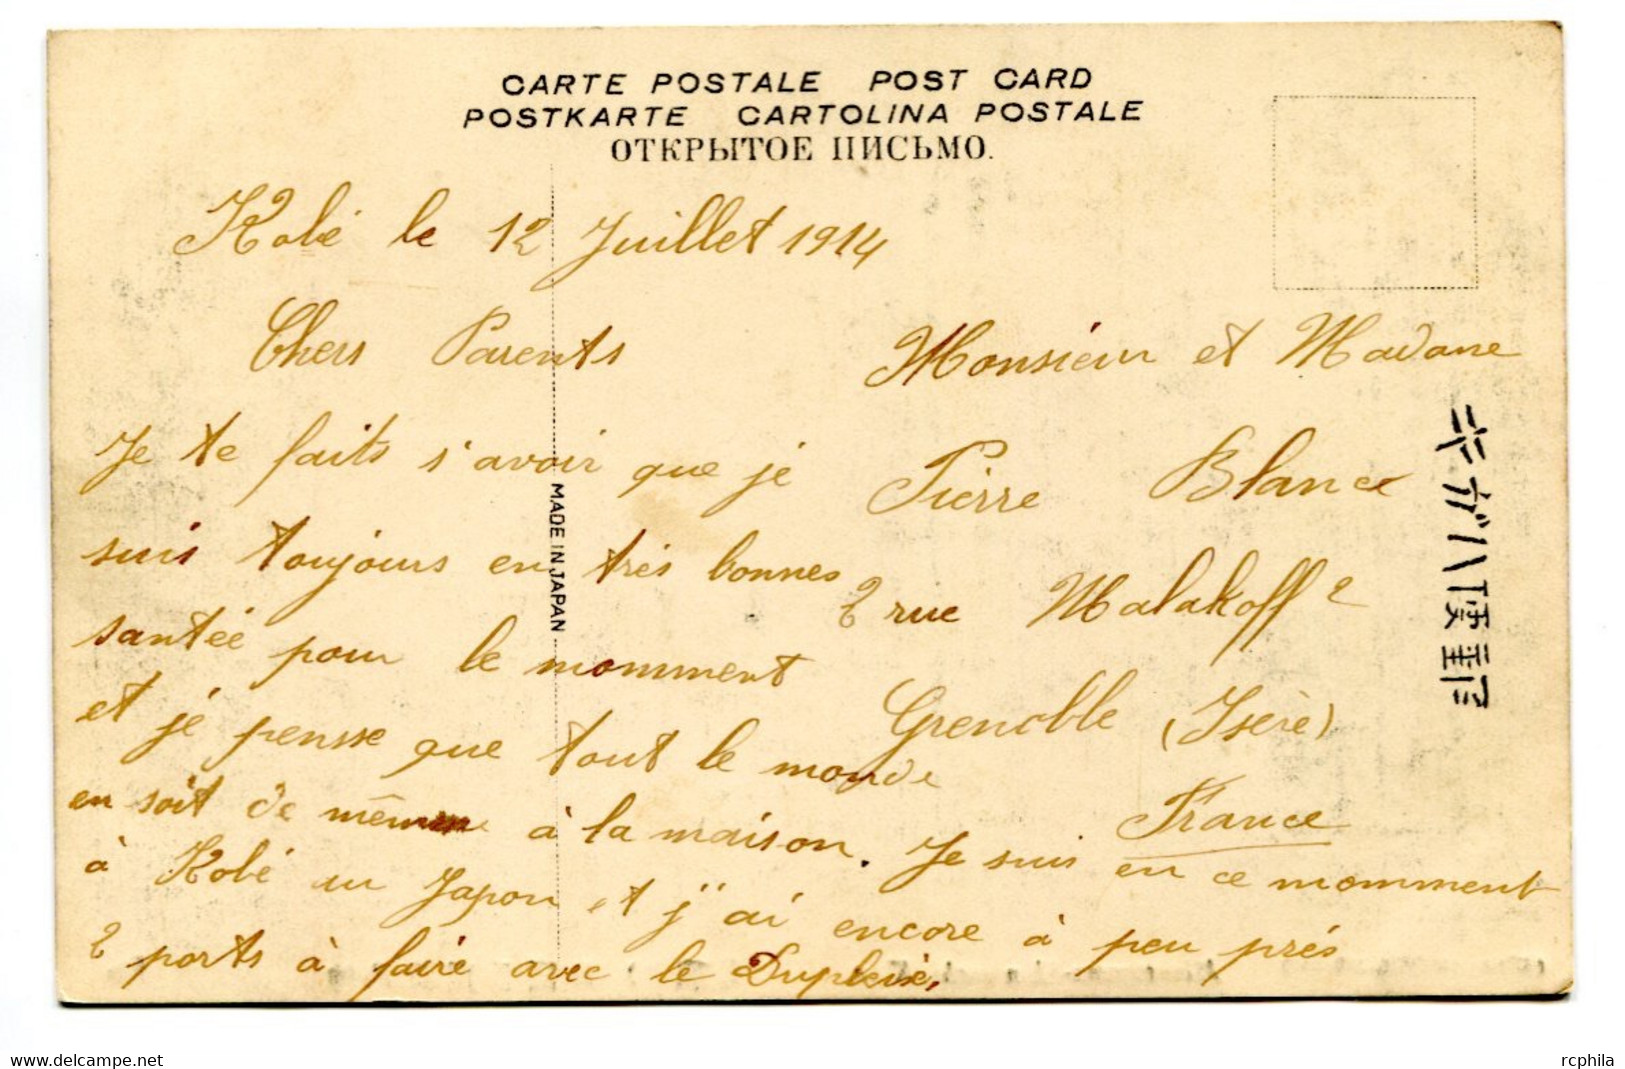 CARTE POSTALE POST CARD
POSTKARTE CARTOLINA POSTALE
ОТКРЫТОЕ ПИСЬМО.
Kobé le 12 Juillet 1914
Chers Parents
Je te faits s'avoir que je
suis toujours en très bonnes
santée pour le momment
et je pensse que tout le monde
en soit de même à la maison. Je suis en ce momment
à Kobé au Japon et j'ai encore à peu prés
2 ports à faire avec le Dupleix.
Monsieur et Madame
Pierre Blanc
2 rue Malakoff 2
Grenoble (Isère)
France
MADE IN JAPAN
郵便ハガキ
www.delcampe.net
rcphila